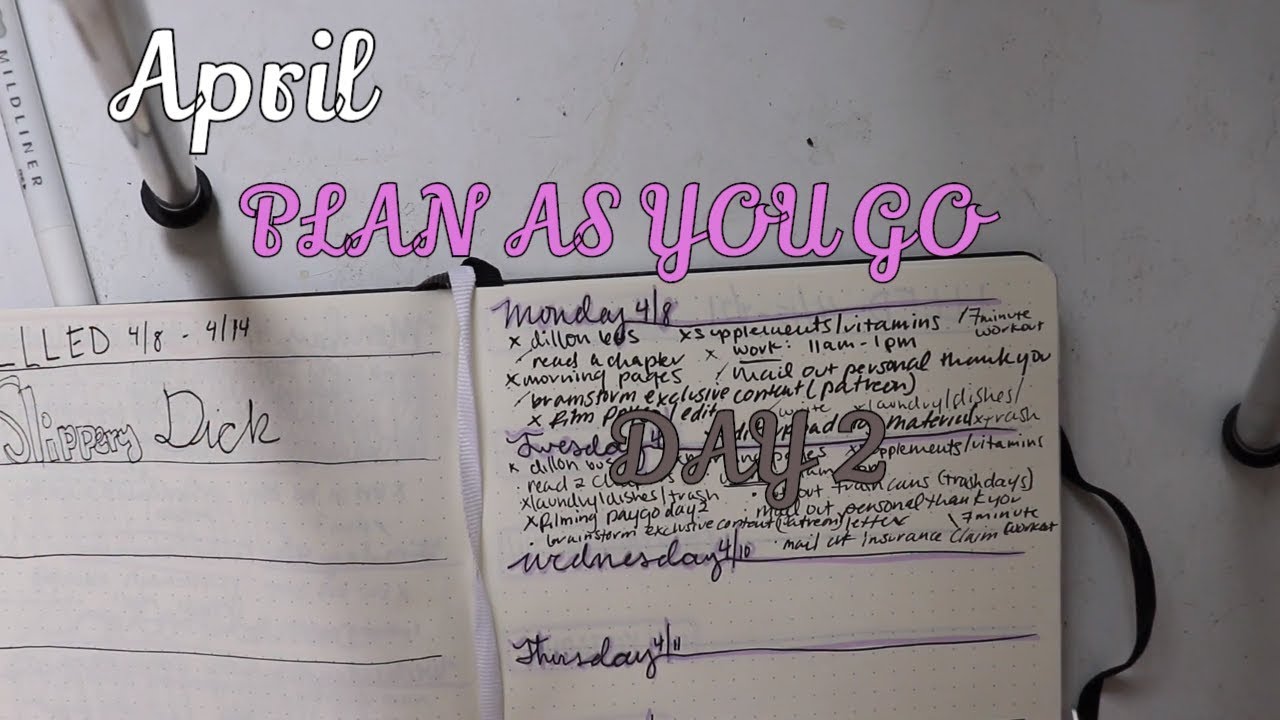 April
PLAN AS YOU GO
DAY 2
MILDLINER
LLED 4/8 - 4/14
Slippery Dick
Monday 4/8
x dillon bus x supplements/vitamins / 7 minute workout
/ read a chapter x work: 11am - 1pm
x morning pages / mail out personal thank you
/ brainstorm exclusive content (patreon)
x film / edit x laundry/dishes/
material x trash
Tuesday 4/
x dillon supplements/vitamins
· read 2
x laundry/dishes/trash out trash cans (trash days)
x filming paygo day 2 mail out personal thank you
· brainstorm exclusive content (patreon) letter \ 7 minute workout
· mail insurance claim
Wednesday 4/10
Thursday 4/11